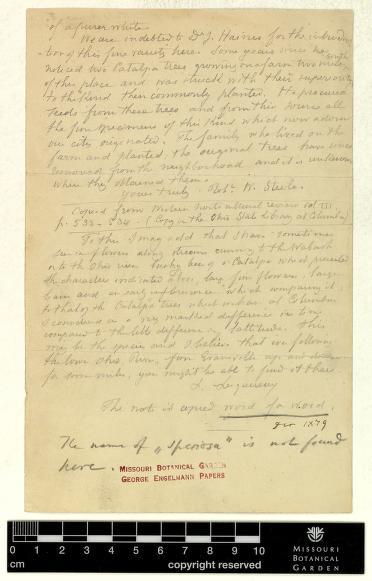 of a purer white.
We are indebted to Dr J. Haines for the introduc-
tion of this fine variety here. Some years since he
noticed two Catalpa trees growing on a farm two miles south
of this place and was struck with their superiority
to the kind then commonly planted. He procured
seeds from these trees and from this source all
the fine specimens of the kind which now adorn
our city originated. The family who lived on the
farm and planted the original trees have since
removed from the neighborhood and it is unknown
where they obtained them.
Yours truly. Robt. W. Steele.
Copied from Western horticultural review vol III
p. 533-534 - (Copy in the Ohio State Library at Columbus)
To this I may add that I have sometimes
seen in flowers along streams running to the Wabash
or to the Ohio river bushy trees of Catalpa which presented
the characters indicated above, large fine flowers, larger
and an early inflorescence which comparing it
to that of the Catalpa trees which we have at Columbus
I considered as a very marked difference in time
compared to the little difference in lattitude. This
may be the species and I believe that in following
the low Ohio River, from Evansville up and down
for some miles, you might be able to find it there
L. Lesquereux
The note is copied word for word.
1879
The name of „Speciosa" is not found
here.
MISSOURI BOTANICAL GARDEN
GEORGE ENGELMANN PAPERS
0 1 2 3 4 5 6 7 8 9 10
cm
copyright reserved
MISSOURI
BOTANICAL
GARDEN